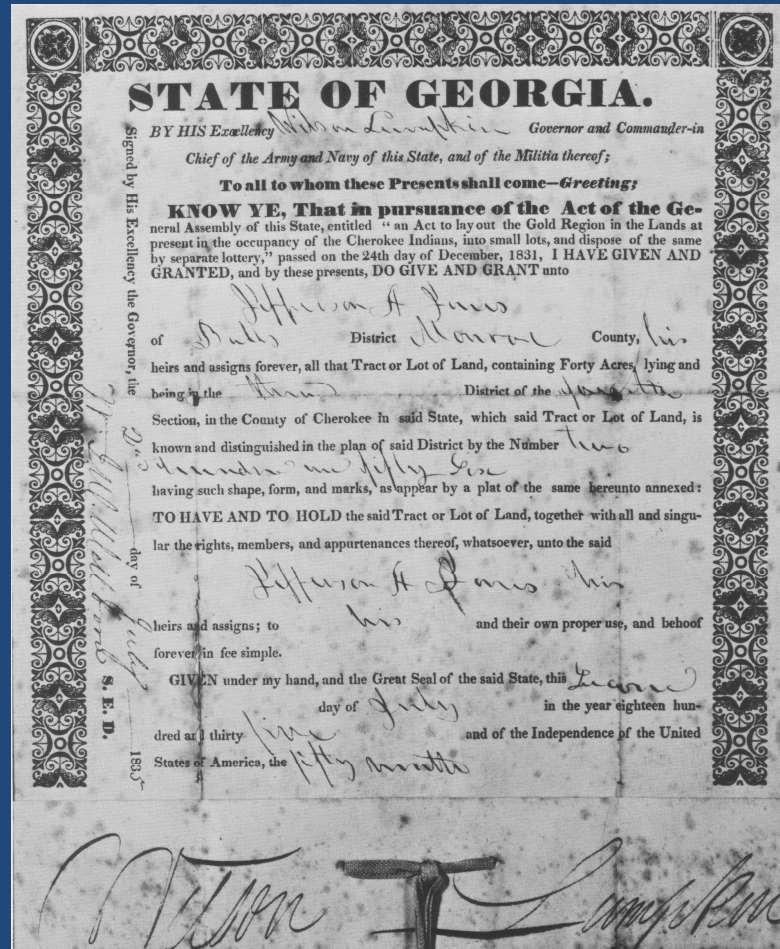 STATE OF GEORGIA.
BY HIS Excellency Wilson Lumpkin Governor and Commander-in
Chief of the Army and Navy of this State, and of the Militia thereof;
To all to whom these Presents shall come—Greeting;
KNOW YE, That in pursuance of the Act of the Ge-
neral Assembly of this State, entitled "an Act to lay out the Gold Region in the Lands at
present in the occupancy of the Cherokee Indians, into small lots, and dispose of the same
by separate lottery," passed on the 24th day of December, 1831, I HAVE GIVEN AND
GRANTED, and by these presents, DO GIVE AND GRANT unto
Jefferson A Jones
of Butts District Monroe County, his
heirs and assigns forever, all that Tract or Lot of Land, containing Forty Acres, lying and
being in the District of the
Section, in the County of Cherokee in said State, which said Tract or Lot of Land, is
known and distinguished in the plan of said District by the Number two
hundred and fifty six
having such shape, form, and marks, as appear by a plat of the same hereunto annexed:
TO HAVE AND TO HOLD the said Tract or Lot of Land, together with all and singu-
lar the rights, members, and appurtenances thereof, whatsoever, unto the said
Jefferson A Jones his
heirs and assigns; to his and their own proper use, and behoof
forever in fee simple.
GIVEN under my hand, and the Great Seal of the said State, this
day of July in the year eighteen hun-
dred and thirty five and of the Independence of the United
States of America, the fifty ninth
Wilson Lumpkin
Signed by His Excellency the Governor, the 2d day of July 1835
S. E. D.